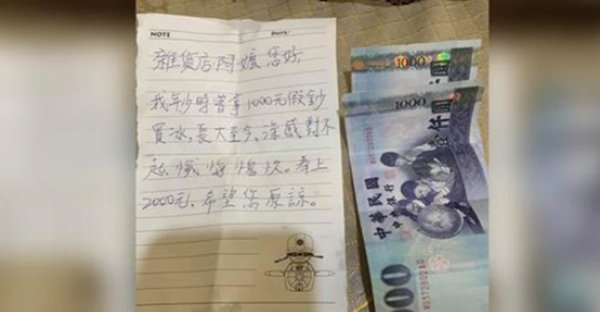 NOTE
DATE:
雜貨店阿嬤您好
我年少時曾拿1000元假鈔
買冰,長大至今,深感對不
起,懺悔愧疚。奉上
2000元,希望您原諒。
1000
1000
壹仟圓
中華民國
中央銀行
000